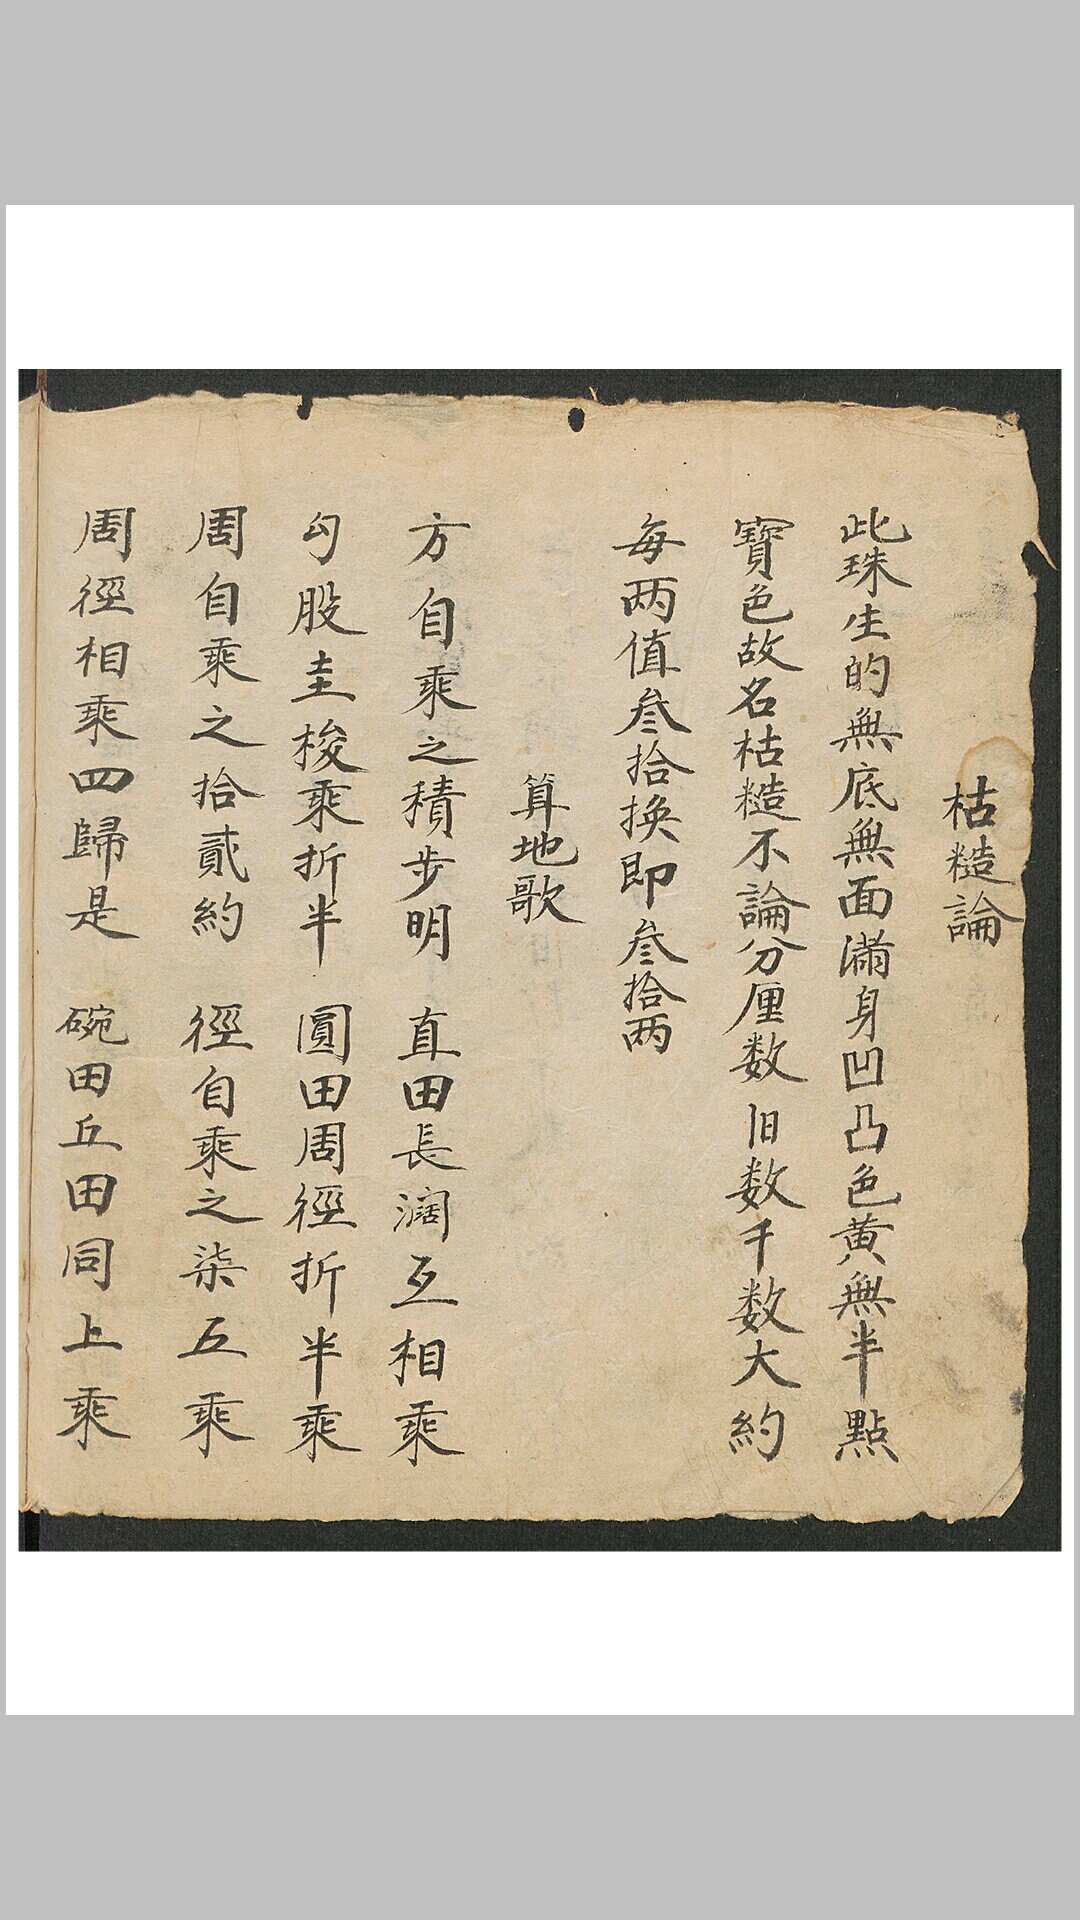 枯糙論
此珠生的無底無面滿身凹凸色黄無半點
寶色故名枯糙不論分厘数旧数千数大約
每两值叁拾换即叁拾两
算地歌
方自乘之積步明 直田長濶互相乘
勾股圭梭乘折半 圓田周徑折半乘
周自乘之拾貳約 徑自乘之柒五乘
周徑相乘四歸是 碗田丘田同上乘